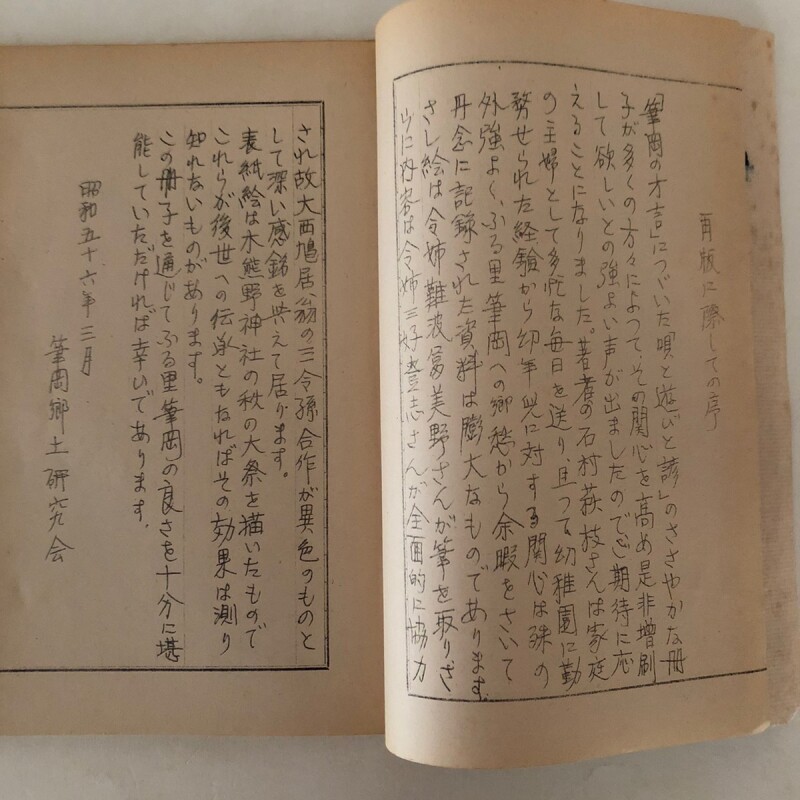 再版に際しての序
「筆岡の方言」につづいた唄と遊びと諺」のささやかな冊
子が多くの方々によつて、その関心を高め是非増刷
して欲しいとの強よい声が出ましたのでご期待に応
えることになりました。著者の石村萩枝さんは家庭
の主婦として多忙な毎日を送り、且つて幼稚園に勤
務せられた経験から幼年児に対する関心は殊の
外強よく、ふる里筆岡への郷愁から余暇をさいて
丹念に記録された資料は膨大なものであります。
さし絵は令姉難波冨美野さんが筆を取りさ
らに内容は令姉三好豊志さんが全面的に協力
され故大西鳩居翁の三令孫合作が異色のものと
して深い感銘を共えて居ります。
表紙絵は木熊野神社の秋の大祭を描いたもので
これらが後世への伝承ともなればその効果は測り
知れないものがあります。
この冊子を通じてふる里筆岡の良さを十分に堪
能していただければ幸いであります。
昭和五十六年三月
筆岡郷土研究会